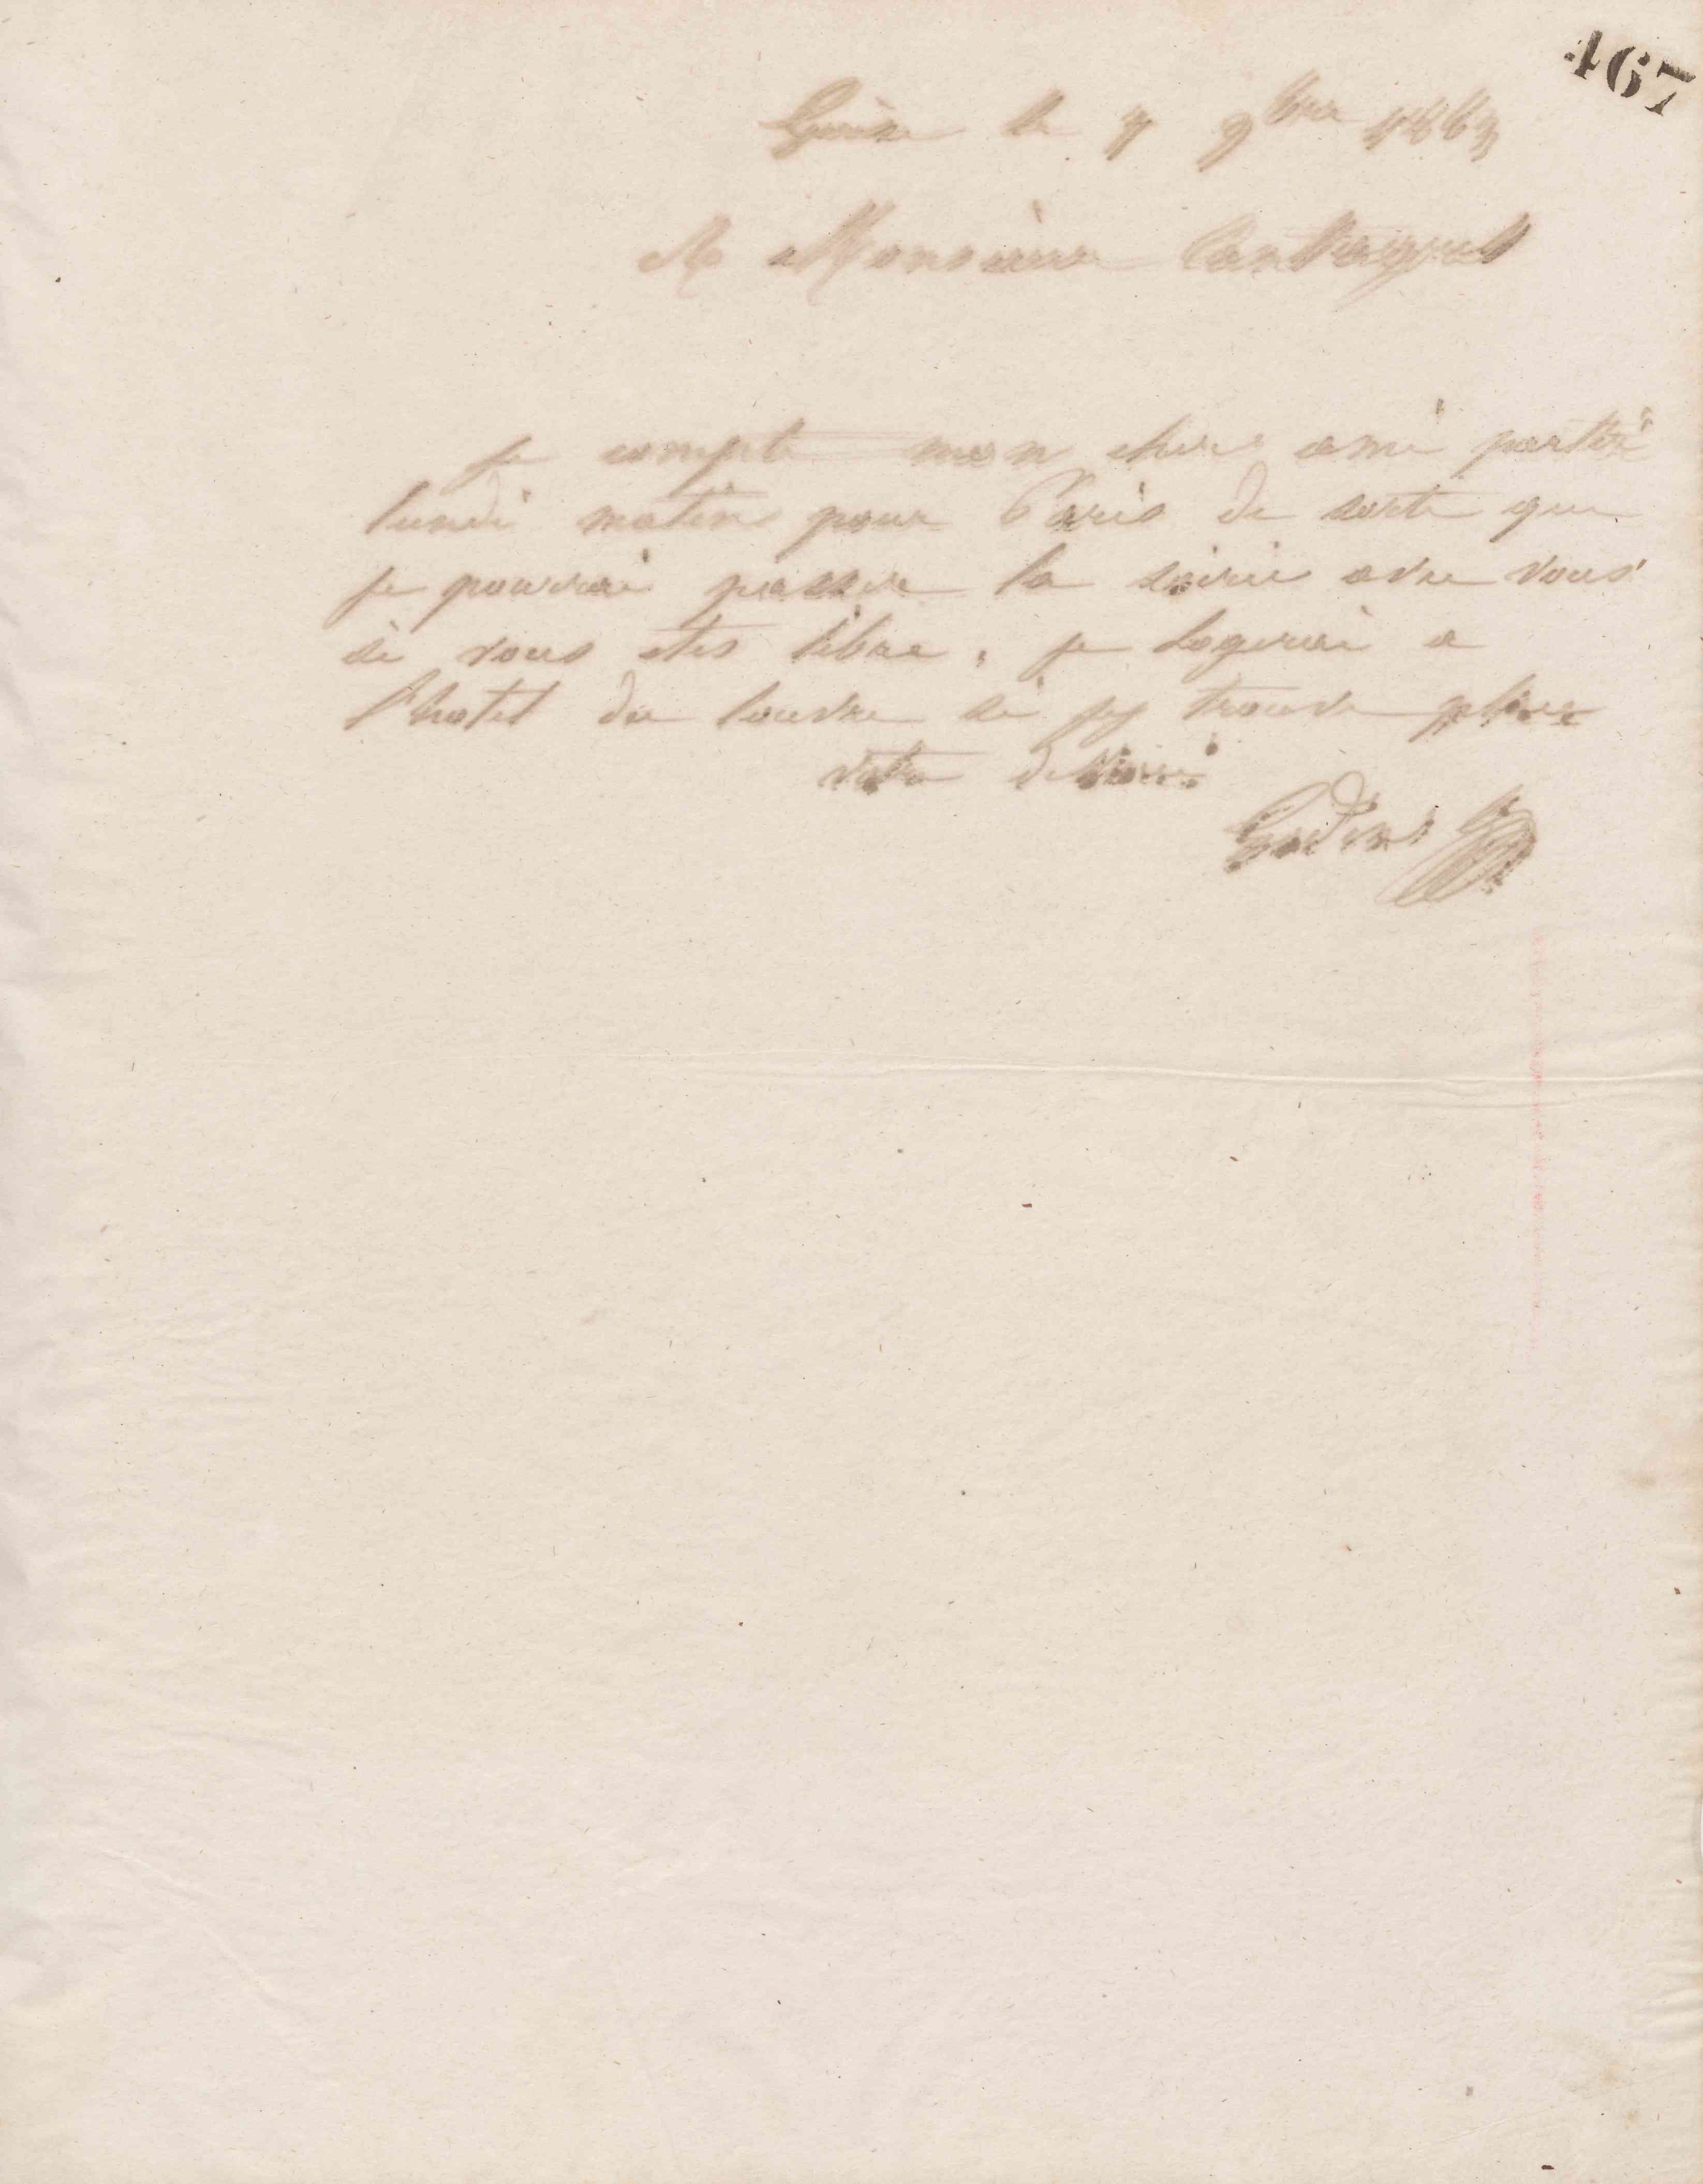 467
Guise le 7 9bre 1863
A Monsieur Cantagrel
je compte mon cher ami partir
lundi matin pour Paris de sorte que
je pourrai passer la soirée avec vous
si vous etes libre, je logerai a
l'hotel du louvre si j'y trouve place
votre dévoué
Godin